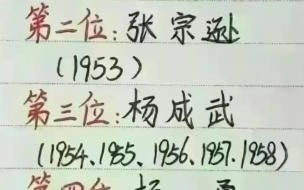 第二位：张宗逊
（1953）
第三位：杨成武
（1954、1955、1956、1957、1958）
第四位：杨 勇